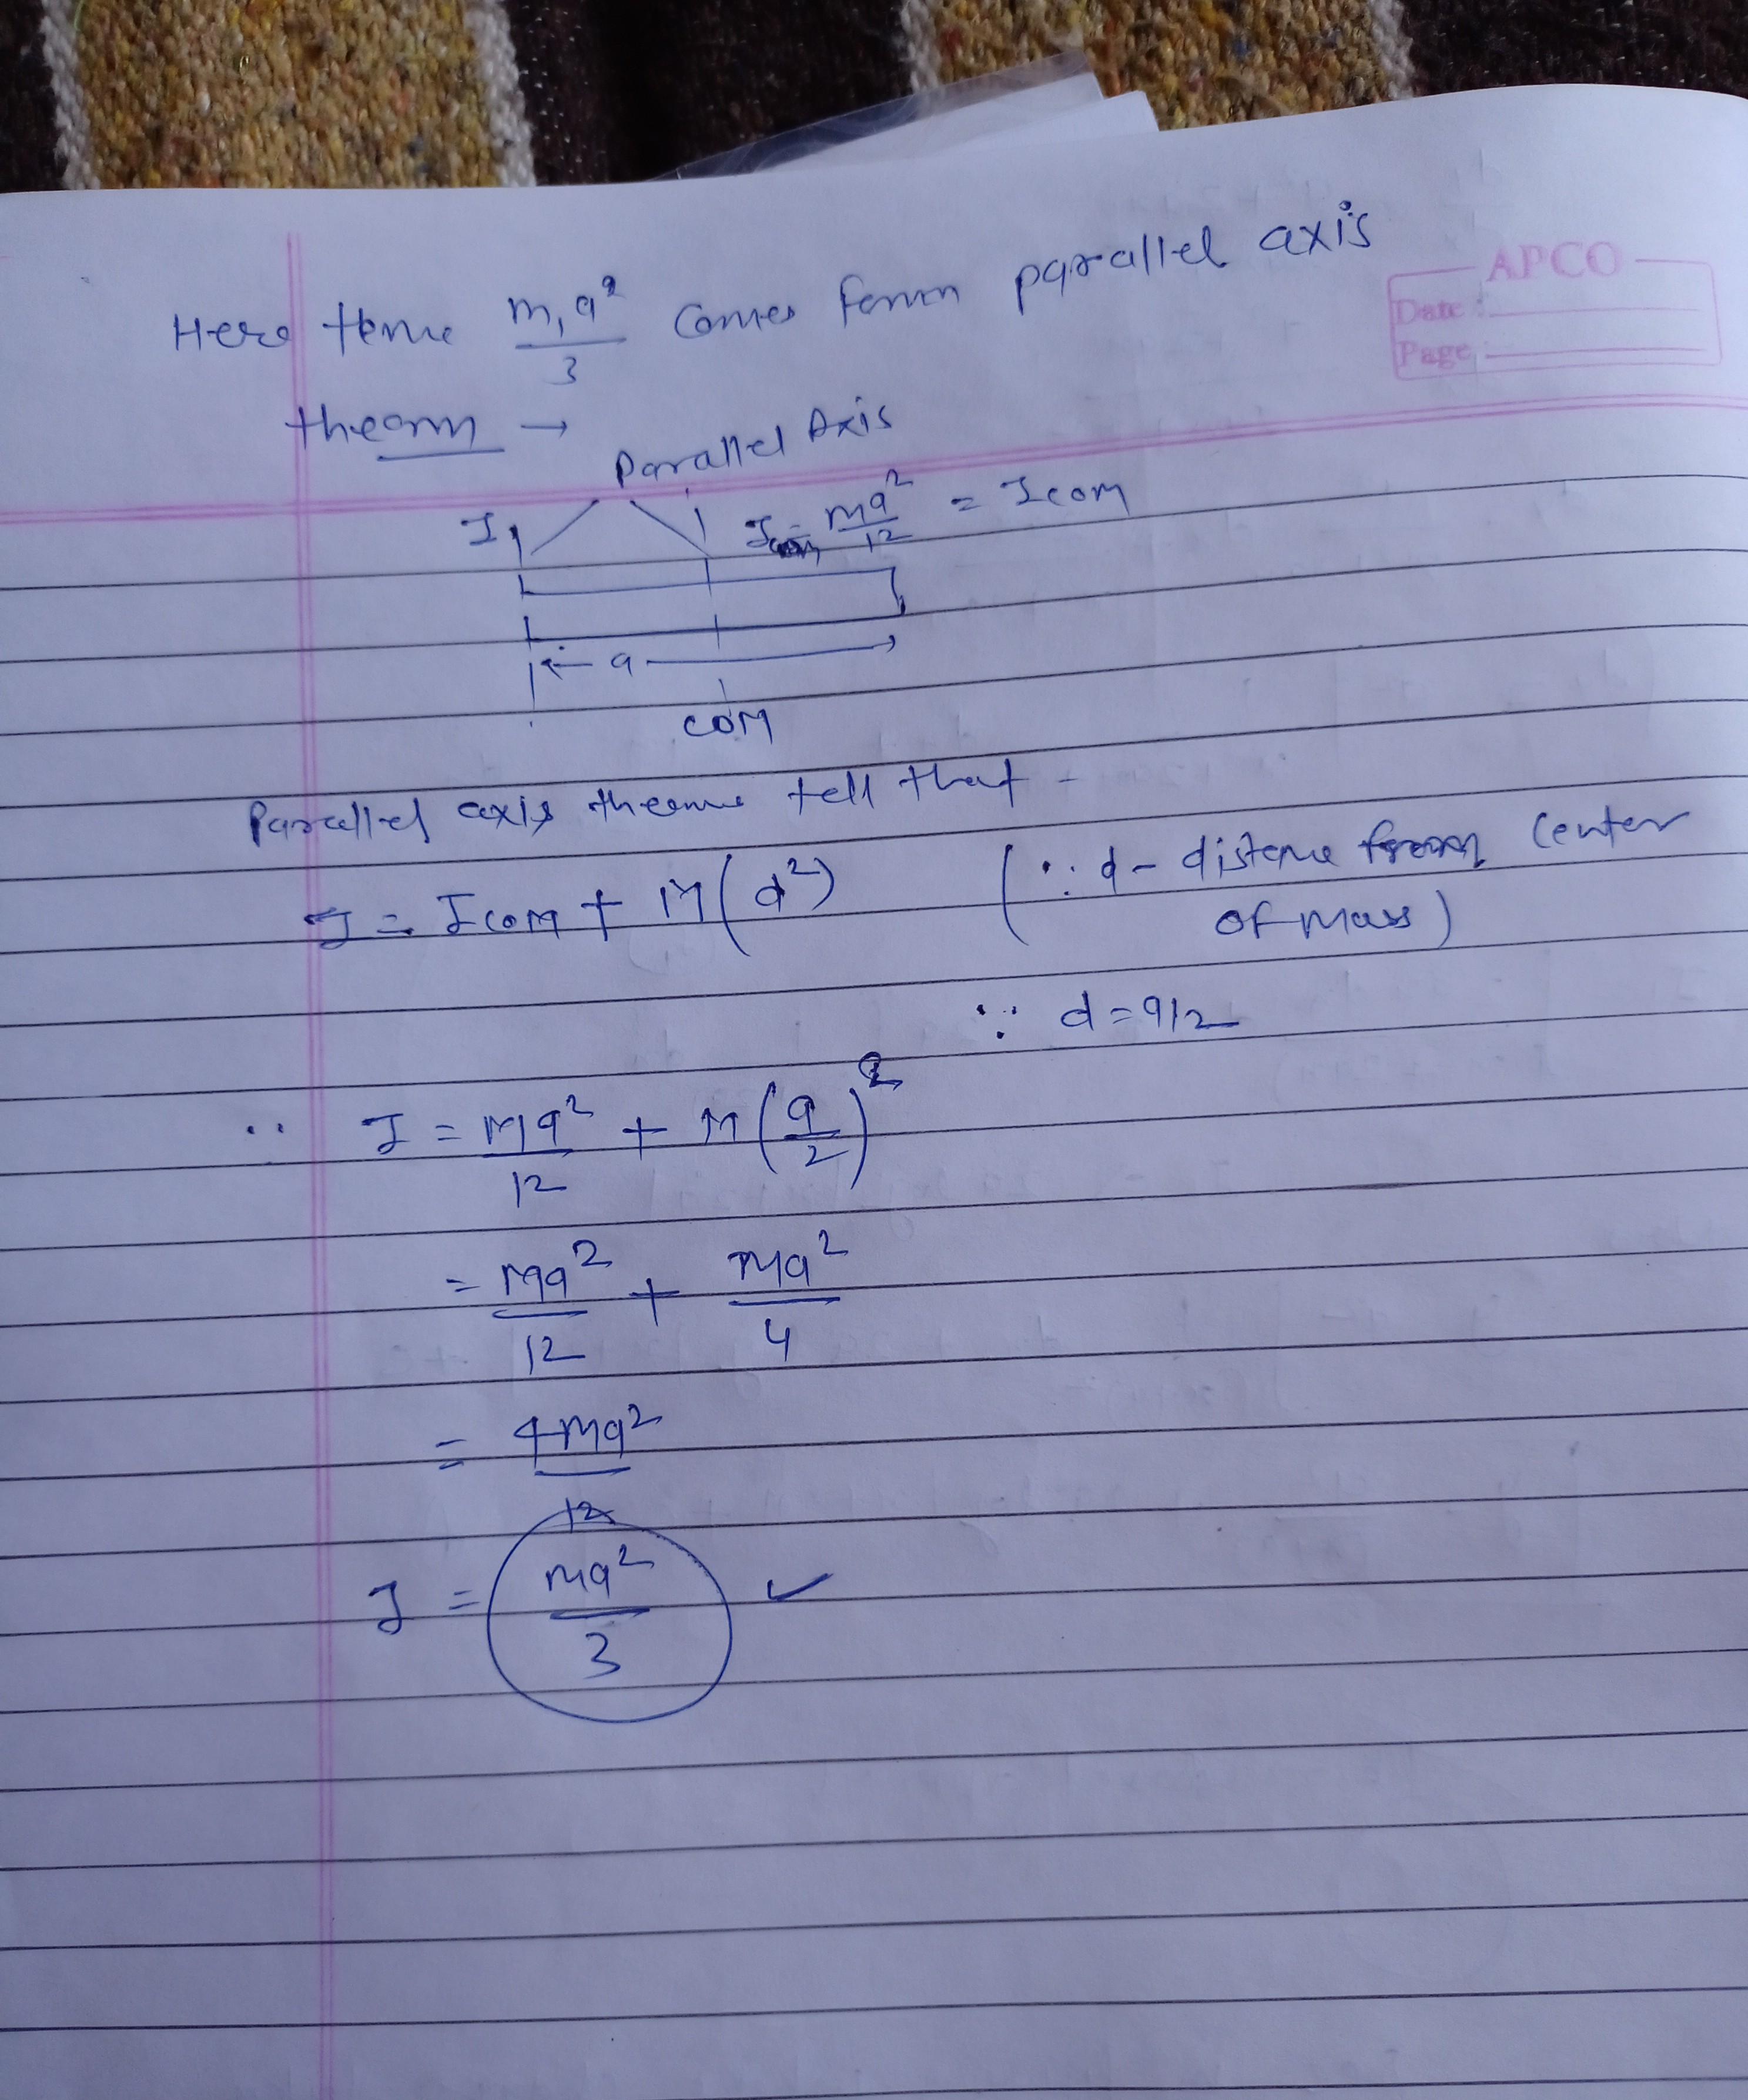 APCO
Date :
Page :
Here terme m₁a² / 3 comes form parallel axis
theorm →
Parallel Axis
I
I = ma² / 12 = Icom
a
COM
Parallel axis theorme tell that -
I = Icom + M(d²) (∵ d - distance from center
of mass)
∵ d = a/2
∴ I = Ma² / 12 + M(a/2)²
= Ma² / 12 + Ma² / 4
= 4Ma² / 12
I = Ma² / 3 ✓